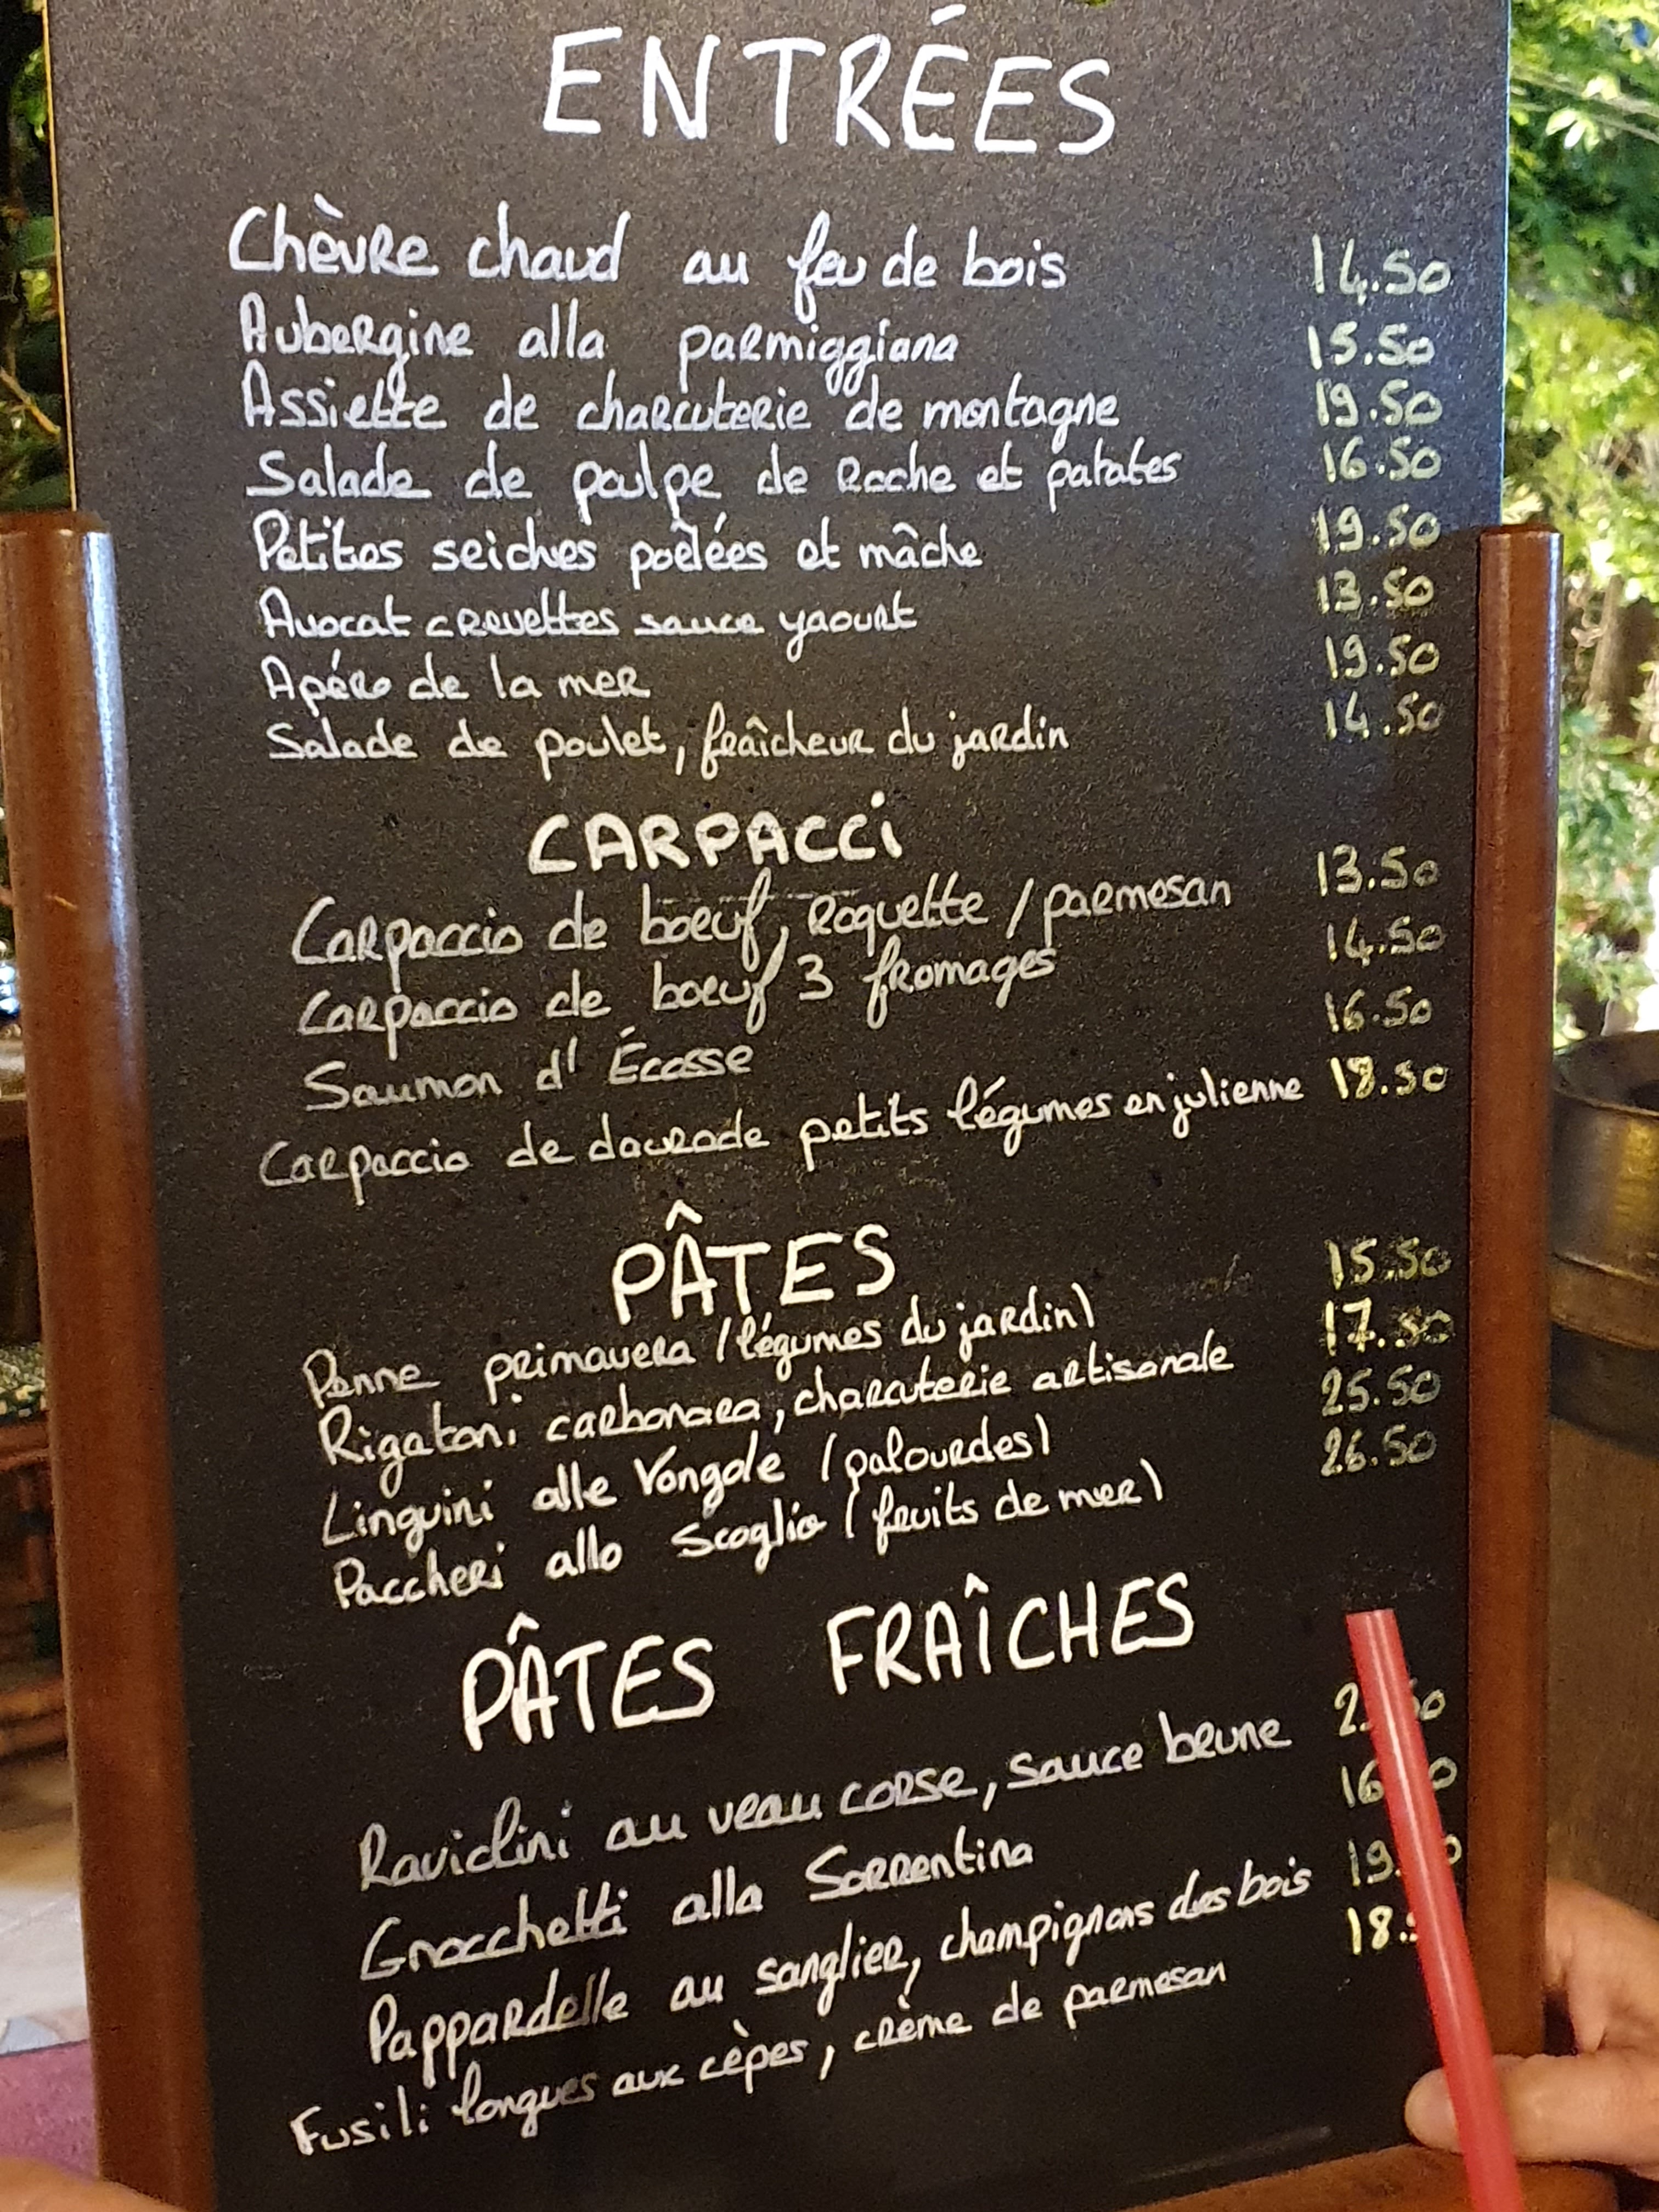 ENTRÉES
Chèvre chaud au feu de bois 14.50
Aubergine alla parmiggiana 15.50
Assiette de charcuterie de montagne 19.50
Salade de poulpe de Roche et patates 16.50
Petites seiches poêlées et mâche 19.50
Avocat crevettes sauce yaourt 13.50
Apéro de la mer 19.50
Salade de poulet, fraîcheur du jardin 14.50
CARPACCi
Carpaccio de boeuf, Roquette / parmesan 13.50
Carpaccio de boeuf / 3 fromages 14.50
Saumon d'Écosse 16.50
Carpaccio de daurade petits légumes en julienne 18.50
PÂTES
Penne primavera (légumes du jardin) 15.50
Rigatoni carbonara, charcuterie artisanale 17.50
Linguini alle Vongole (palourdes) 25.50
Paccheri allo Scoglio (fruits de mer) 26.50
PÂTES FRAÎCHES
Raviolini au veau corse, sauce brune
Gnocchetti alla Sorrentina 16
Pappardelle au sanglier, champignons des bois 19.
Fusili longues aux cèpes, crème de parmesan 18.